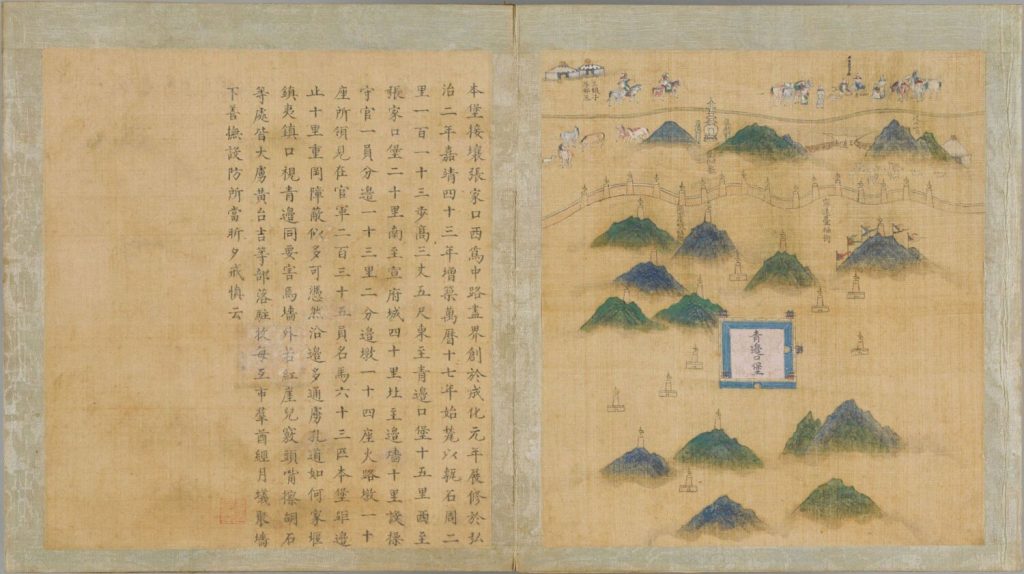 青邊口堡
本堡接壤張家口西爲中路盡界創於成化元年展修於弘
治二年嘉靖四十三年增築萬曆十七年始甃以甎石周二
里一百一十三步高三丈五尺東至青邊口堡十五里西至
張家口堡二十里南至宣府城四十里北至邊墻十里設操
守官一員分邊一十三里二分邊墩一十四座火路墩一十
座所領見在官軍二百三十五員名馬六十三匹本堡距邊
止十里重岡障蔽似多可憑然沿邊多通虜孔道如何家堰
鎮夷鎮口視青邊同要害焉墻外若紅崖兒竅頭嘴擦胡石
等處皆大虜黃台吉等部落駐牧每互市羣酋經月蟻聚墻
下善撫設防所當昕夕戒慎云